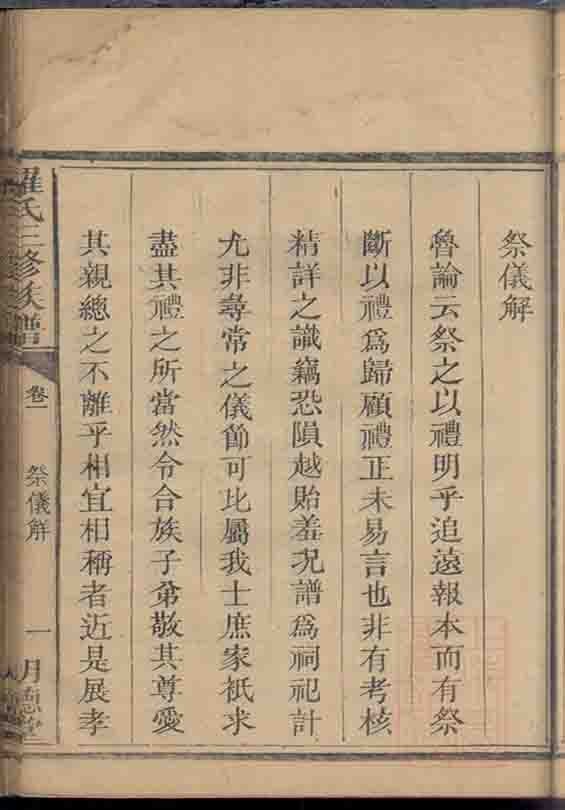 祭儀解
魯論云祭之以禮明乎追遠報本而有祭
斷以禮爲歸顧禮正未易言也非有考核
精詳之識竊恐隕越貽羞況譜爲祠祀計
尤非尋常之儀節可比屬我士庶家祇求
盡其禮之所當然令合族子弟敬其尊愛
其親總之不離乎相宜相稱者近是展孝
羅氏三修族譜
卷一
祭儀解
一